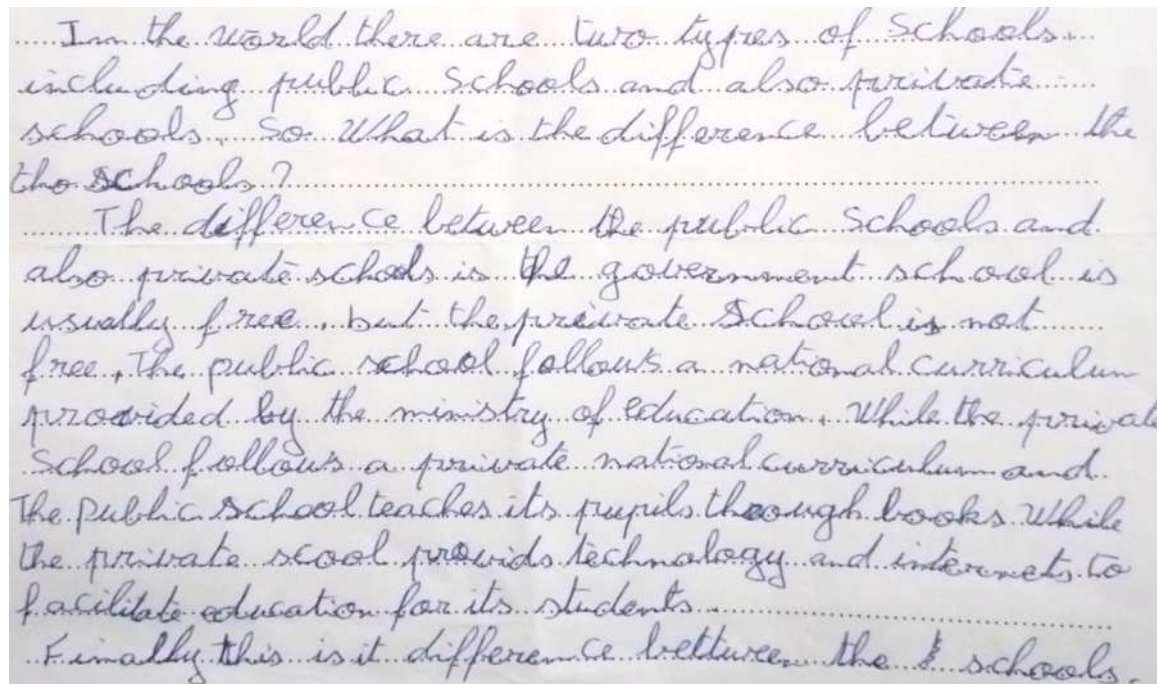 In the world there are two types of Schools
including public Schools and also private
schools. So What is the difference between the
tho schools?
The difference between the public Schools and
also private schols is the government school is
usually free, but the preivate School is not
free, The public school follows a national curriculum
provided by the ministry of education, While the private
School follows a private national curriculum and
The public school teaches its pupils through books While
the private scool provids technology and internets to
facilitate education for its students.
Finally this is it difference bettween the schools.